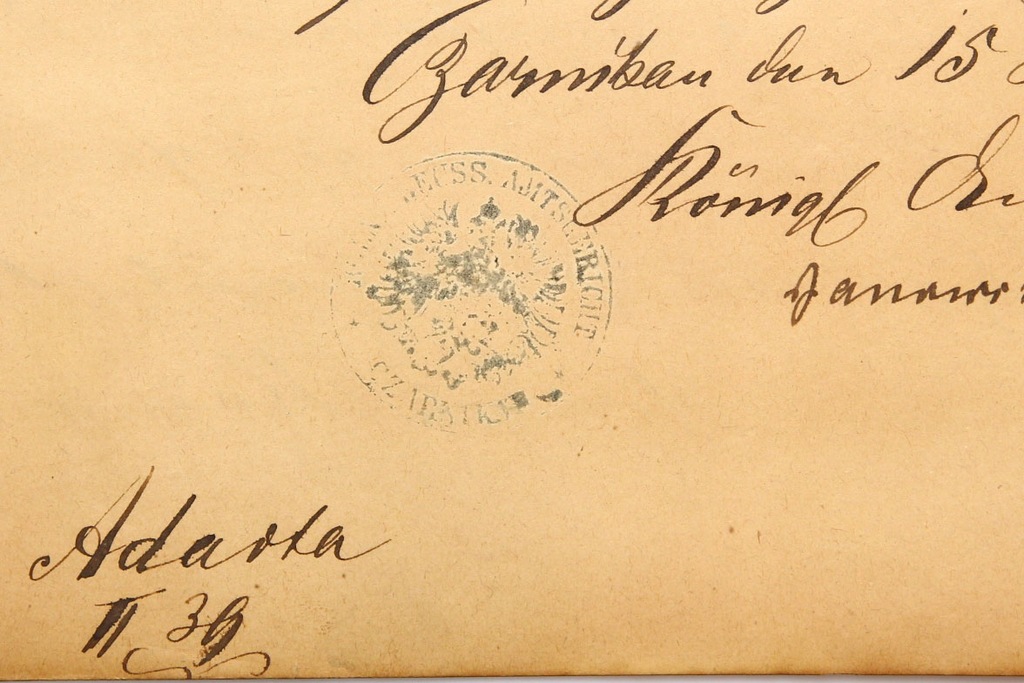 Czarnikau den 15
Königl
KÖNIGL. PREUSS. AMTSGERICHT
CZARNIKAU
Adarta
II 39